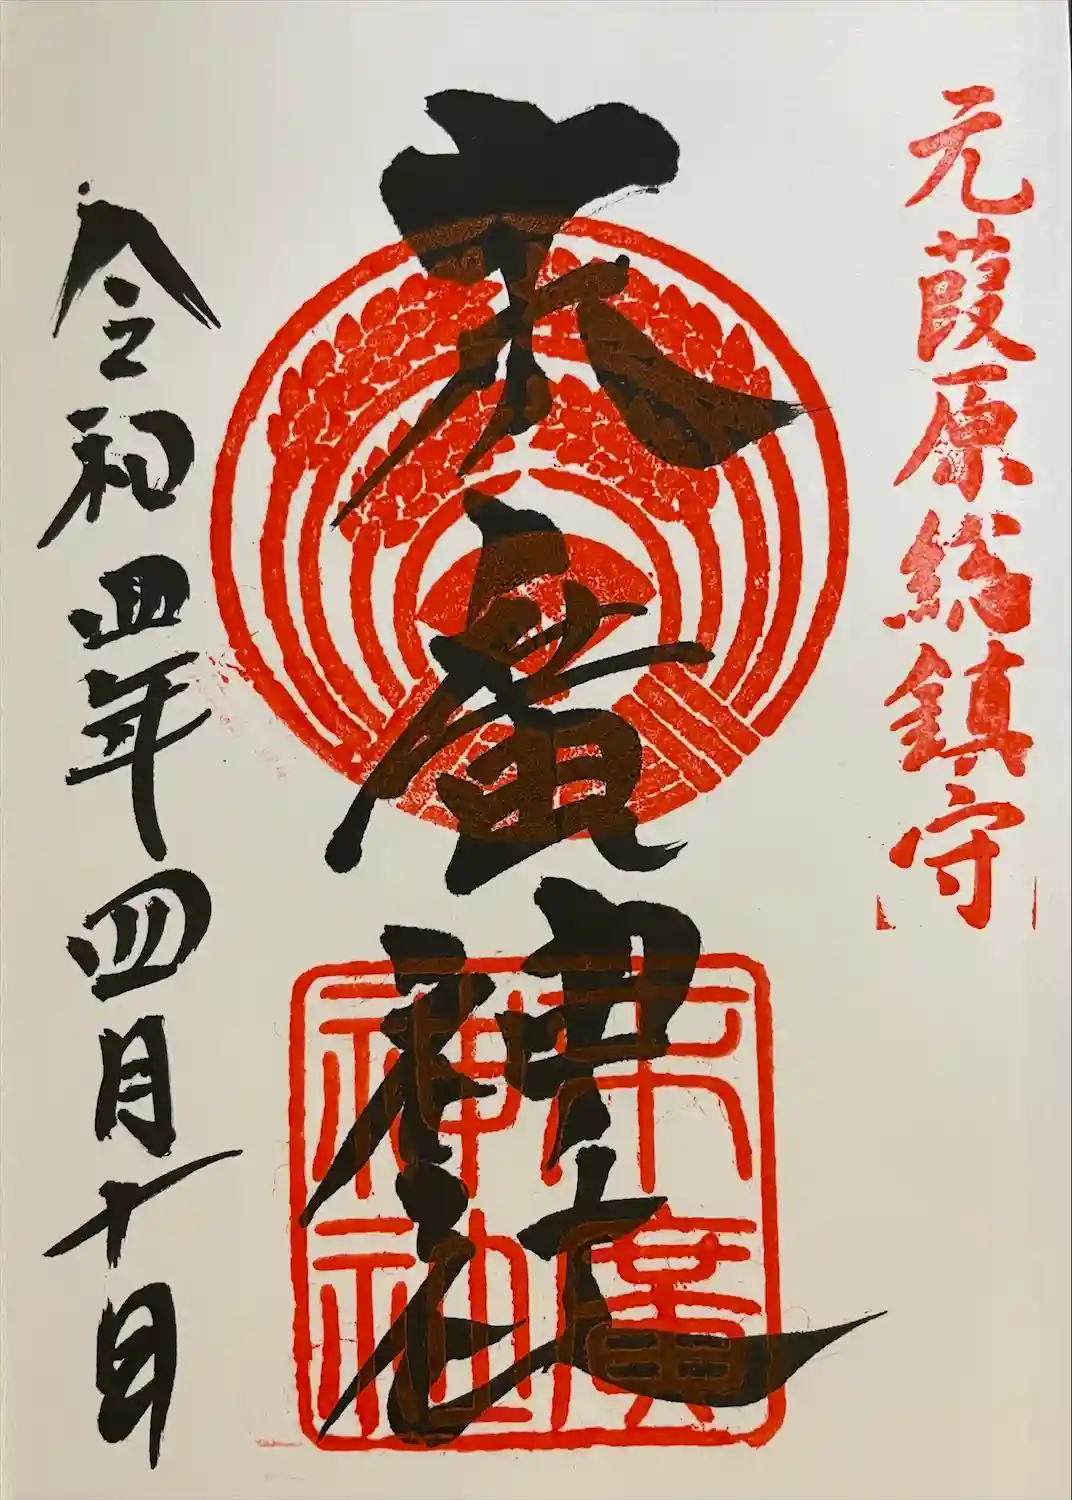 元葭原総鎮守
末廣神社
末廣
神社
令和四年四月十日